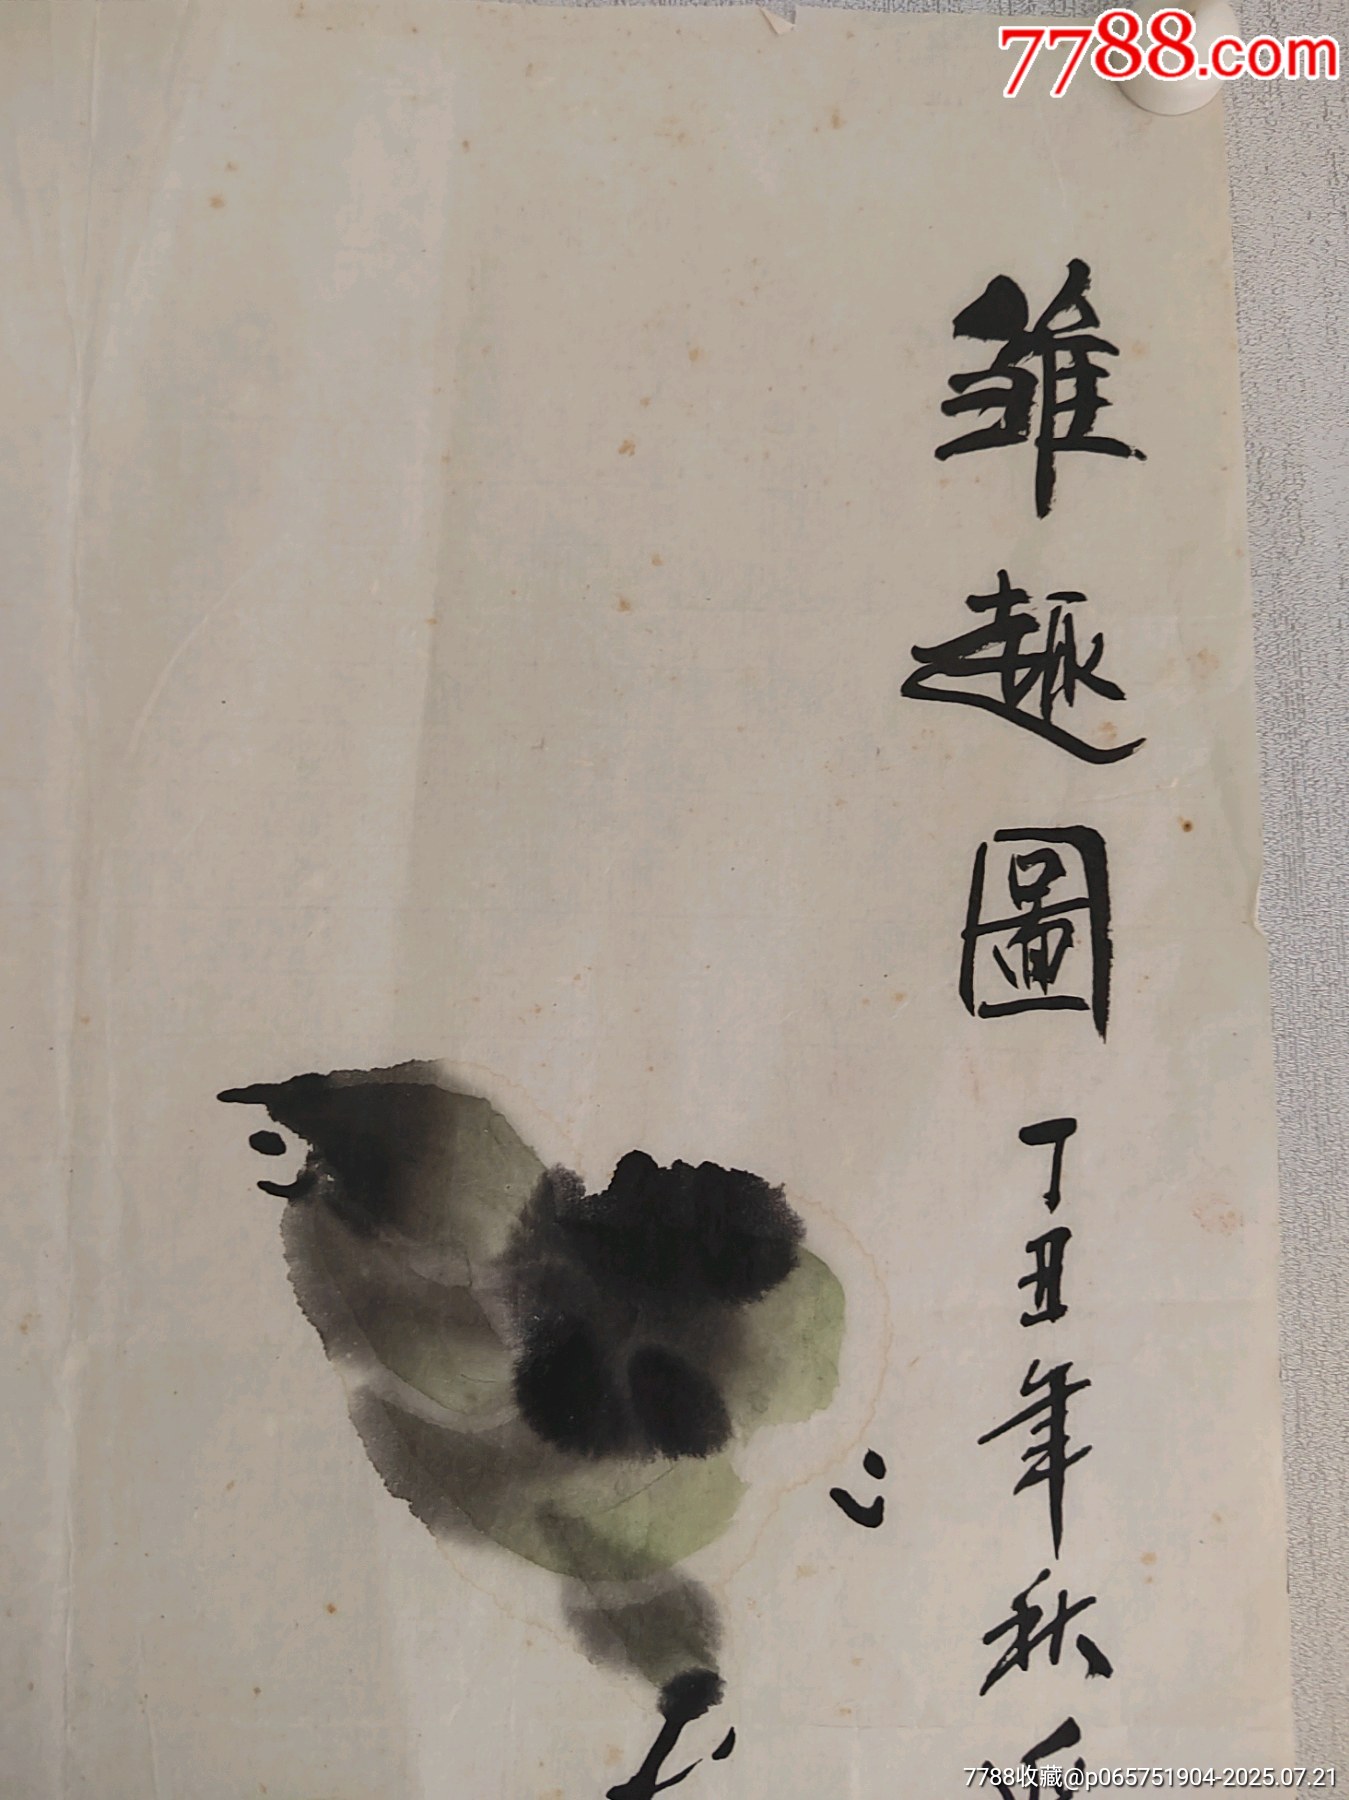 7788.com
雏趣圖丁丑年秋
7788收藏@p065751904-2025.07.21